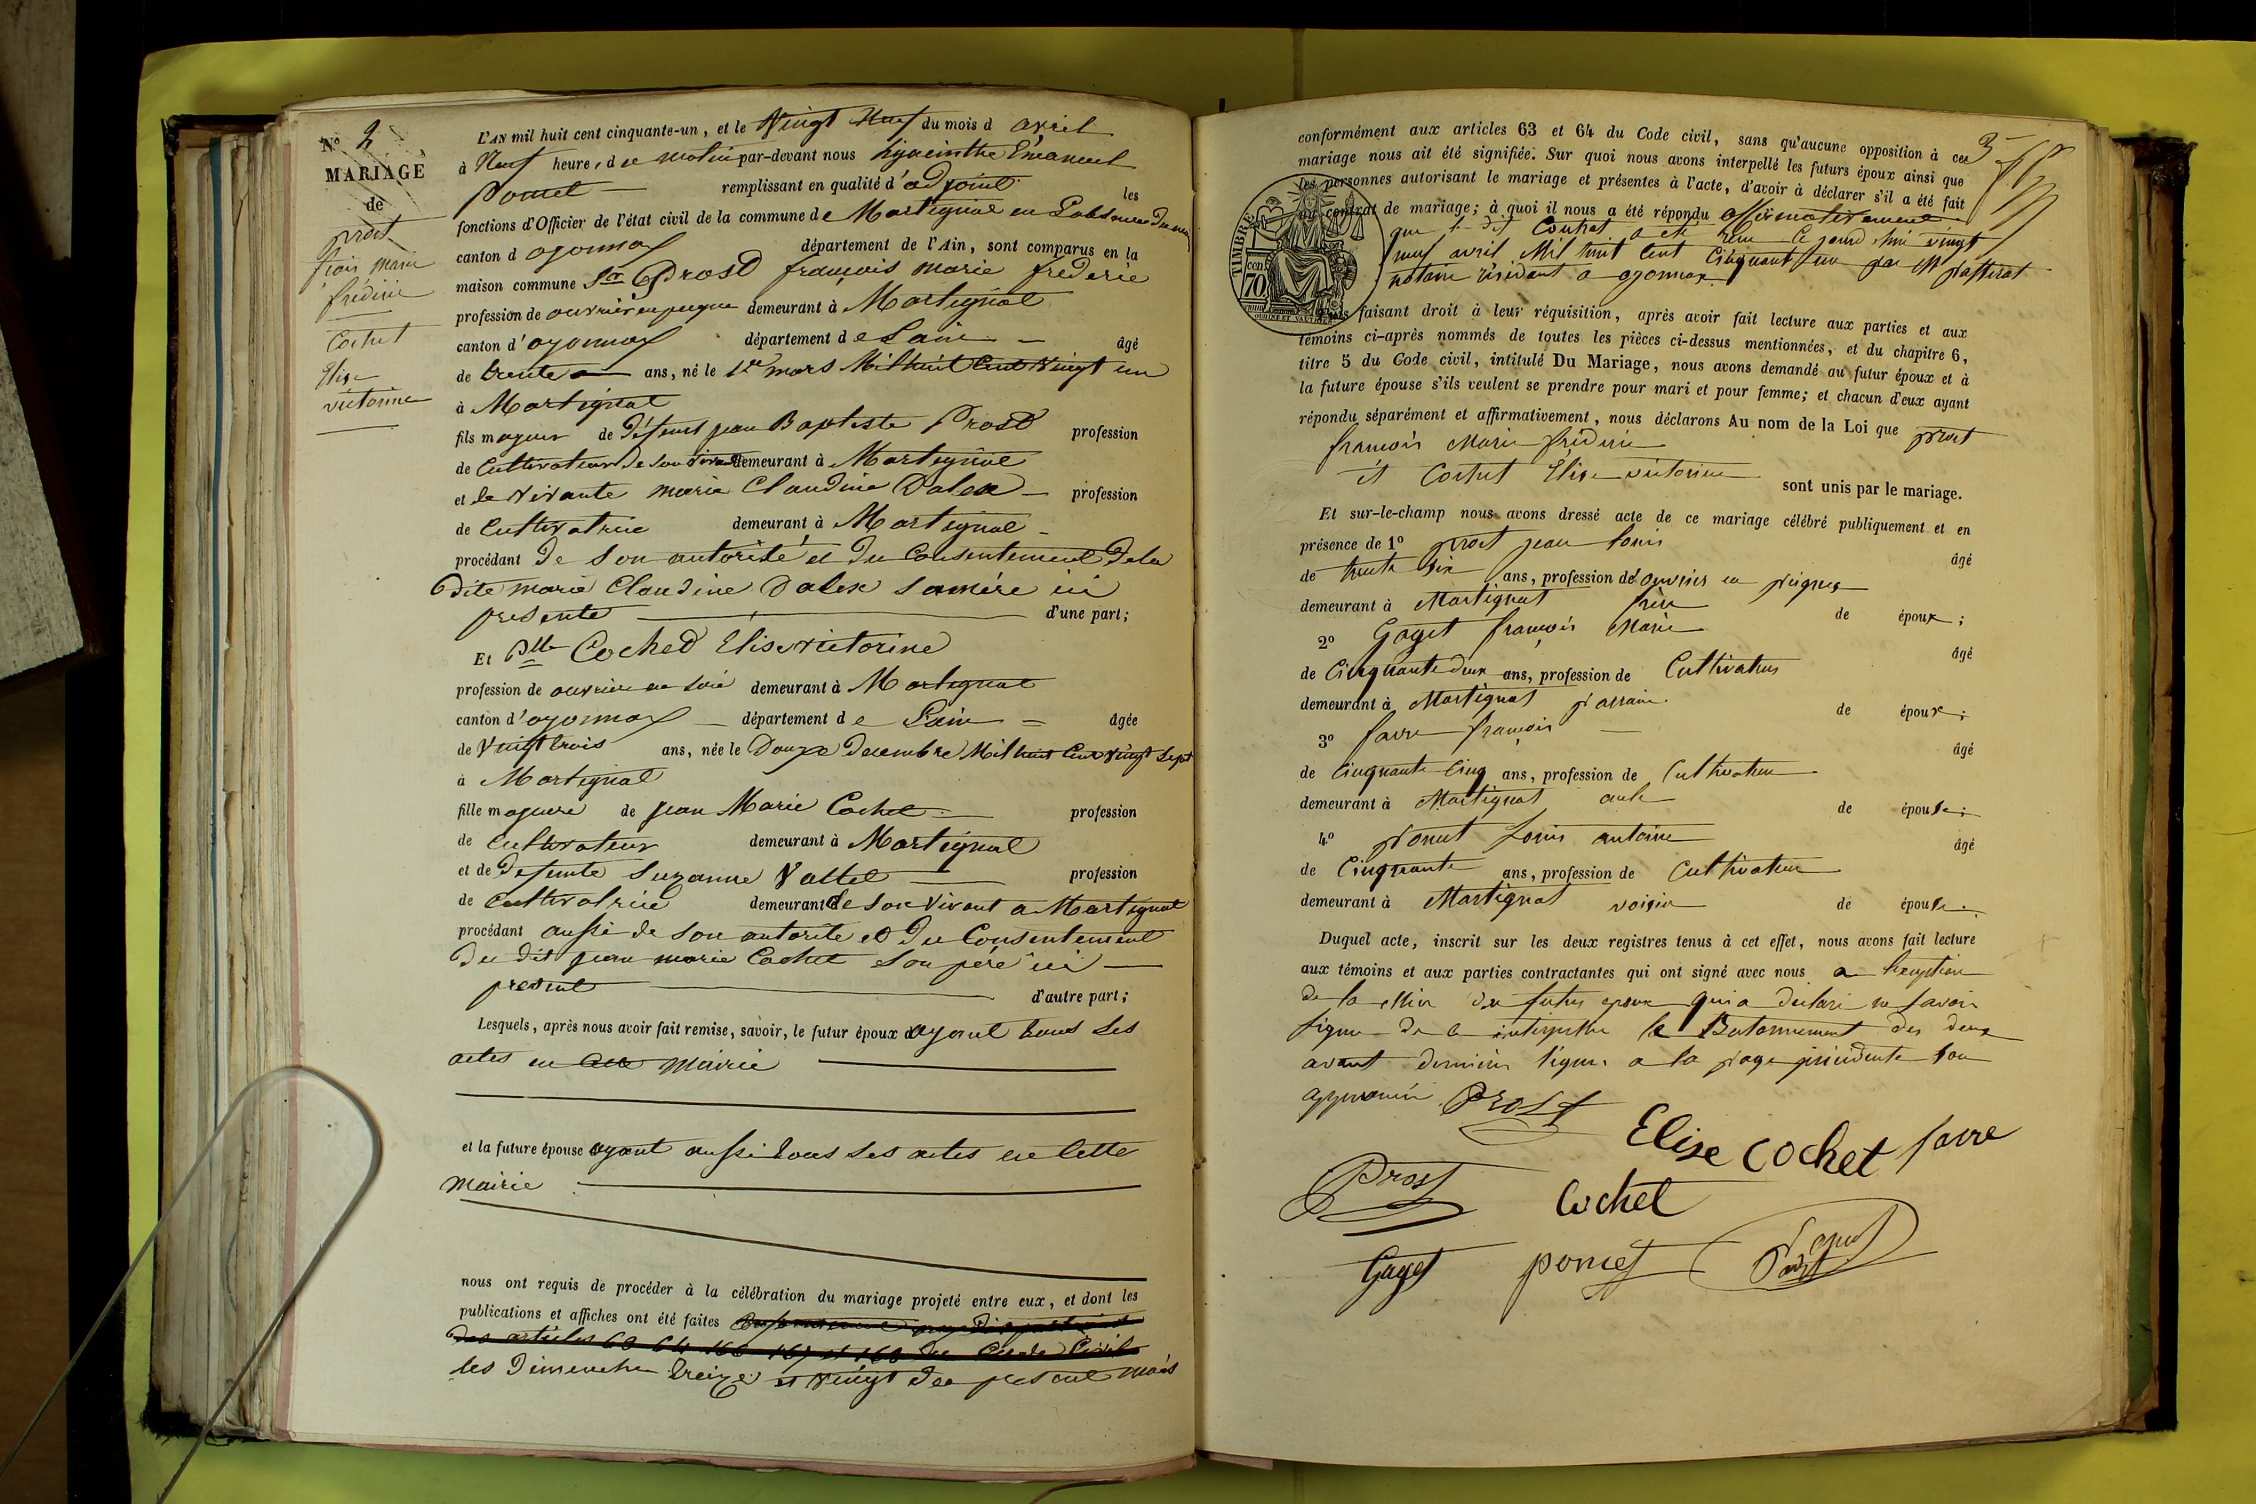 N° 2
MARIAGE
de
prost
frois marie
frederic
Cochet
Elise
victorine
L'AN mil huit cent cinquante-un, et le Vingt Neuf du mois d avril
à Neuf heure, d u matin par-devant nous hyacinthe Emanuel
Poncet remplissant en qualité d'adjoint les
fonctions d'Officier de l'état civil de la commune de Martignat en l'absence du maire
canton d oyonnax département de l'Ain, sont comparus en la
maison commune Sr Prost françois marie frederic
profession de ouvrier en peigne demeurant à Martignat
canton d'oyonnax département de Lain âgé
de trente ans, né le 1er mars Mil huit Cent Vingt un
à Martignat
fils majeur de Défunt jean Baptiste Prost profession
de Cultivateur de son vivant demeurant à Martignat
et de vivante marie Claudine Dalex profession
de Cultivatrice demeurant à Martignat
procédant de son autorité et du Consentement de la
dite marie Claudine Dalex sa mére ici
presente d'une part;
Et Dlle Cochet Elise victorine
profession de ouvrière en soie demeurant à Martignat
canton d'oyonnax département de Lain âgée
de Vingt trois ans, née le Douze decembre Mil huit Cent Vingt Sept
à Martignat
fille majeure de jean Marie Cochet profession
de Cultivateur demeurant à Martignat
et de défunte Suzanne Vattet profession
de Cultivatrice demeurant de son Vivant a Martignat
procédant aussi de son autorité et du Consentement
du dit jean marie Cochet son pére ici
présent d'autre part;
Lesquels, après nous avoir fait remise, savoir, le futur époux ayant tous ses
actes en cette mairie
et la future épouse ayant aussi tous ses actes en Cette
mairie
nous ont requis de procéder à la célébration du mariage projeté entre eux, et dont les
publications et affiches ont été faites
des articles 63 64 166 167 et 168 du Code Civil
les Dimenches treize et vingt du présent mois
conformément aux articles 63 et 64 du Code civil, sans qu'aucune opposition à ces 3
mariage nous ait été signifiée. Sur quoi nous avons interpellé les futurs époux ainsi que
les personnes autorisant le mariage et présentes à l'acte, d'avoir à déclarer s'il a été fait
un contrat de mariage; à quoi il nous a été répondu affirmativement
que le dit Contrat a été reçu Ce jourd'hui vingt
neuf avril Mil huit Cent Cinquant un par Me passerat
notaire résidant a oyonnax.
TIMBRE
70
Puis faisant droit à leur réquisition, après avoir fait lecture aux parties et aux
témoins ci-après nommés de toutes les pièces ci-dessus mentionnées, et du chapitre 6,
titre 5 du Code civil, intitulé Du Mariage, nous avons demandé au futur époux et à
la future épouse s'ils veulent se prendre pour mari et pour femme; et chacun d'eux ayant
répondu séparément et affirmativement, nous déclarons Au nom de la Loi que prost
françois Marie fréderic
et Cochet Elise victorine
sont unis par le mariage.
Et sur-le-champ nous avons dressé acte de ce mariage célébré publiquement et en
présence de 1° prost jean louis âgé
de trente six ans, profession de ouvrier en peignes
demeurant à Martignat frère de époux;
2° Gaget françois Marie âgé
de Cinquante deux ans, profession de Cultivateur
demeurant à Martignat parrain de époux;
3° favre françois âgé
de Cinquante Cinq ans, profession de Cultivateur
demeurant à Martignat oncle de épouse;
4° poncet Louis antoine âgé
de Cinquante ans, profession de Cultivateur
demeurant à Martignat voisin de épouse.
Duquel acte, inscrit sur les deux registres tenus à cet effet, nous avons fait lecture
aux témoins et aux parties contractantes qui ont signé avec nous a l'exeption
de la Mère du futur epoux qui a declaré ne savoir
signer de ce interpellée le Batonnement des deux
avant dernières lignes a la page précédente son
approuvées
Prost
Elise Cochet favre
Prost
Cochet
Gaget poncet